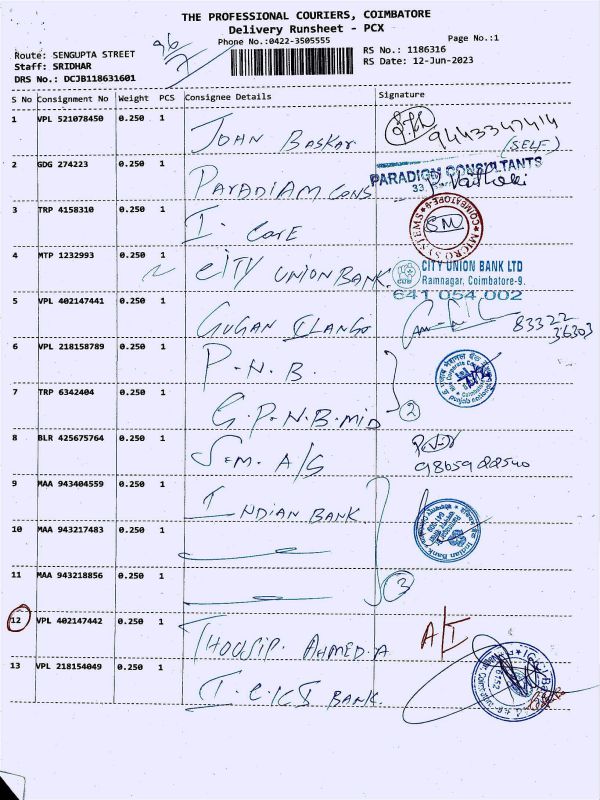 THE PROFESSIONAL COURIERS, COIMBATORE
Delivery Runsheet - PCX
Phone No.:0422-3505555
Page No.:1
96/7
Route: SENGUPTA STREET
Staff: SRIDHAR
DRS No.: DCJB118631601
RS No.: 1186316
RS Date: 12-Jun-2023
S No Consignment No Weight PCS Consignee Details Signature
1 VPL 521078450 0.250 1 JOHN BASKAR 9443347414
(SELF)
2 GDG 274223 0.250 1 PARADIAM CONS PARADIGM CONSULTANTS
33,
3 TRP 4158310 0.250 1 I. CARE MICRO SYSTEMS COIMBATORE SM
4 MTP 1232993 0.250 1 CITY UNION BANK. CUB CITY UNION BANK LTD
Ramnagar, Coimbatore-9.
641 054 002
5 VPL 402147441 0.250 1 GUGAN ILANGO 83322
36303
6 VPL 218158789 0.250 1 P.N.B.
7 TRP 6342404 0.250 1 G.P.N.B.MID 2
8 BLR 425675764 0.250 1 S.M. A/S
9865922540
9 MAA 943404559 0.250 1 INDIAN BANK
10 MAA 943217483 0.250 1
11 MAA 943218856 0.250 1 3
12 VPL 402147442 0.250 1 THOUSIP. AHMED.A A/I
13 VPL 218154049 0.250 1 I.C.I.C.I BANK.